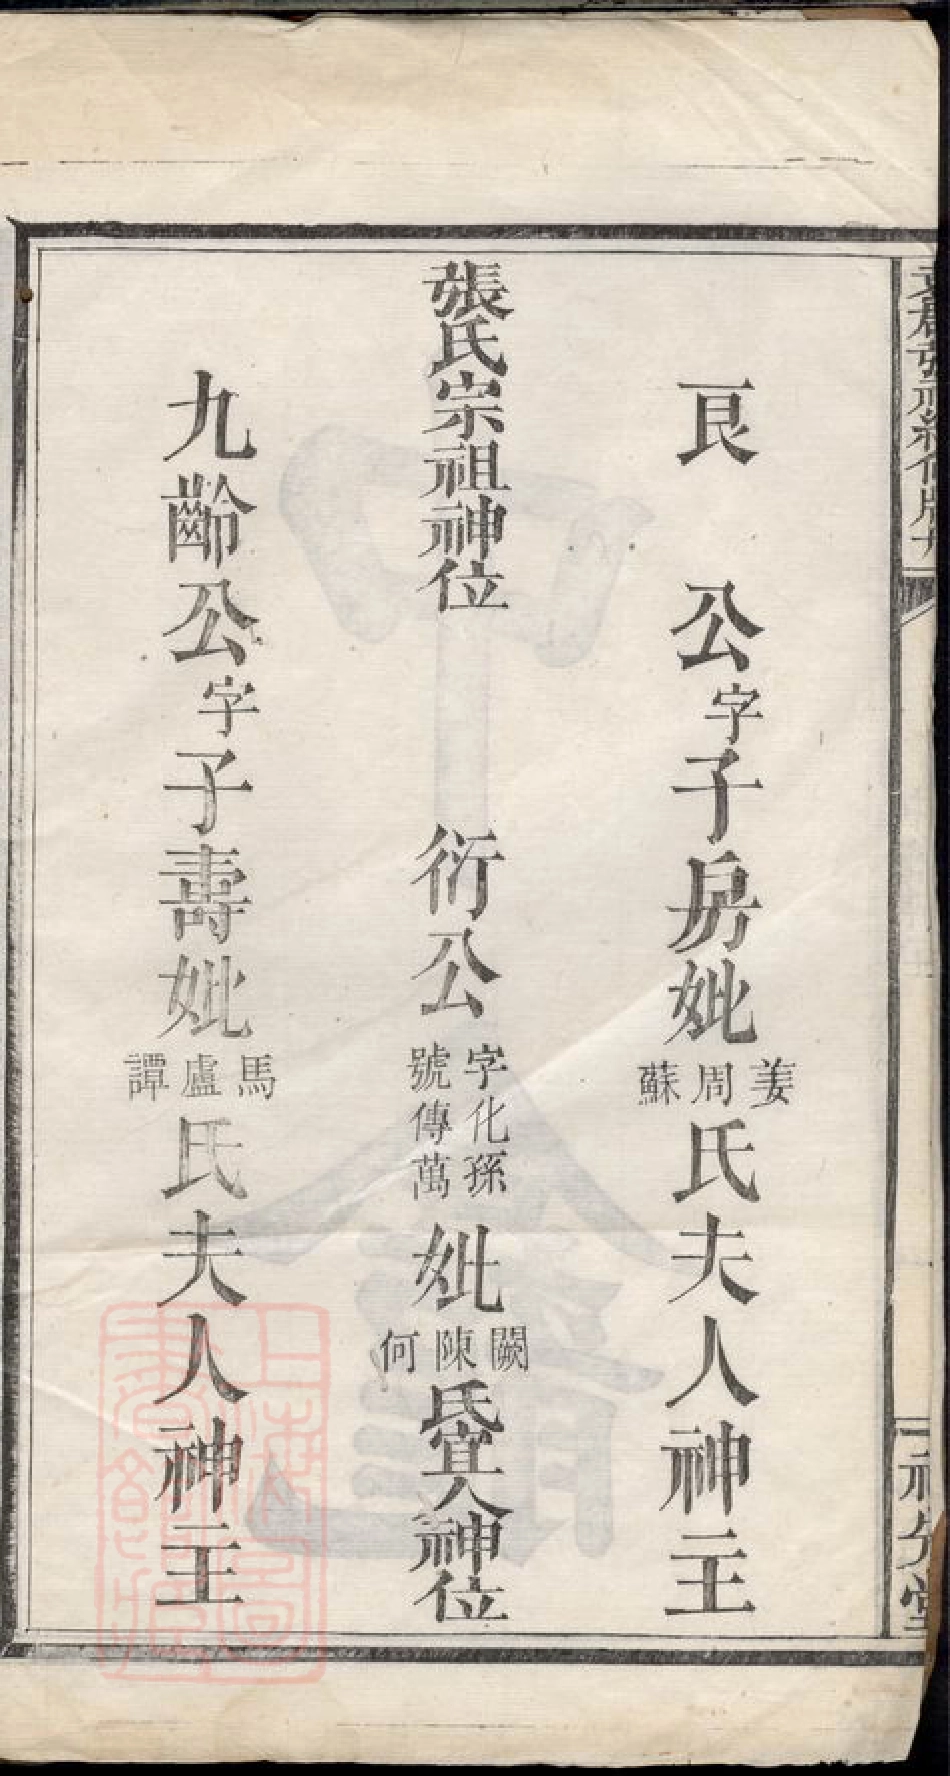 良 公字子房妣姜周蘇氏夫人神主
張氏宗祖神位 衍公字化孫號傳萬妣闕陳何氏宜人神位
九齡公字子壽妣馬盧譚氏夫人神主
上海圖書館藏